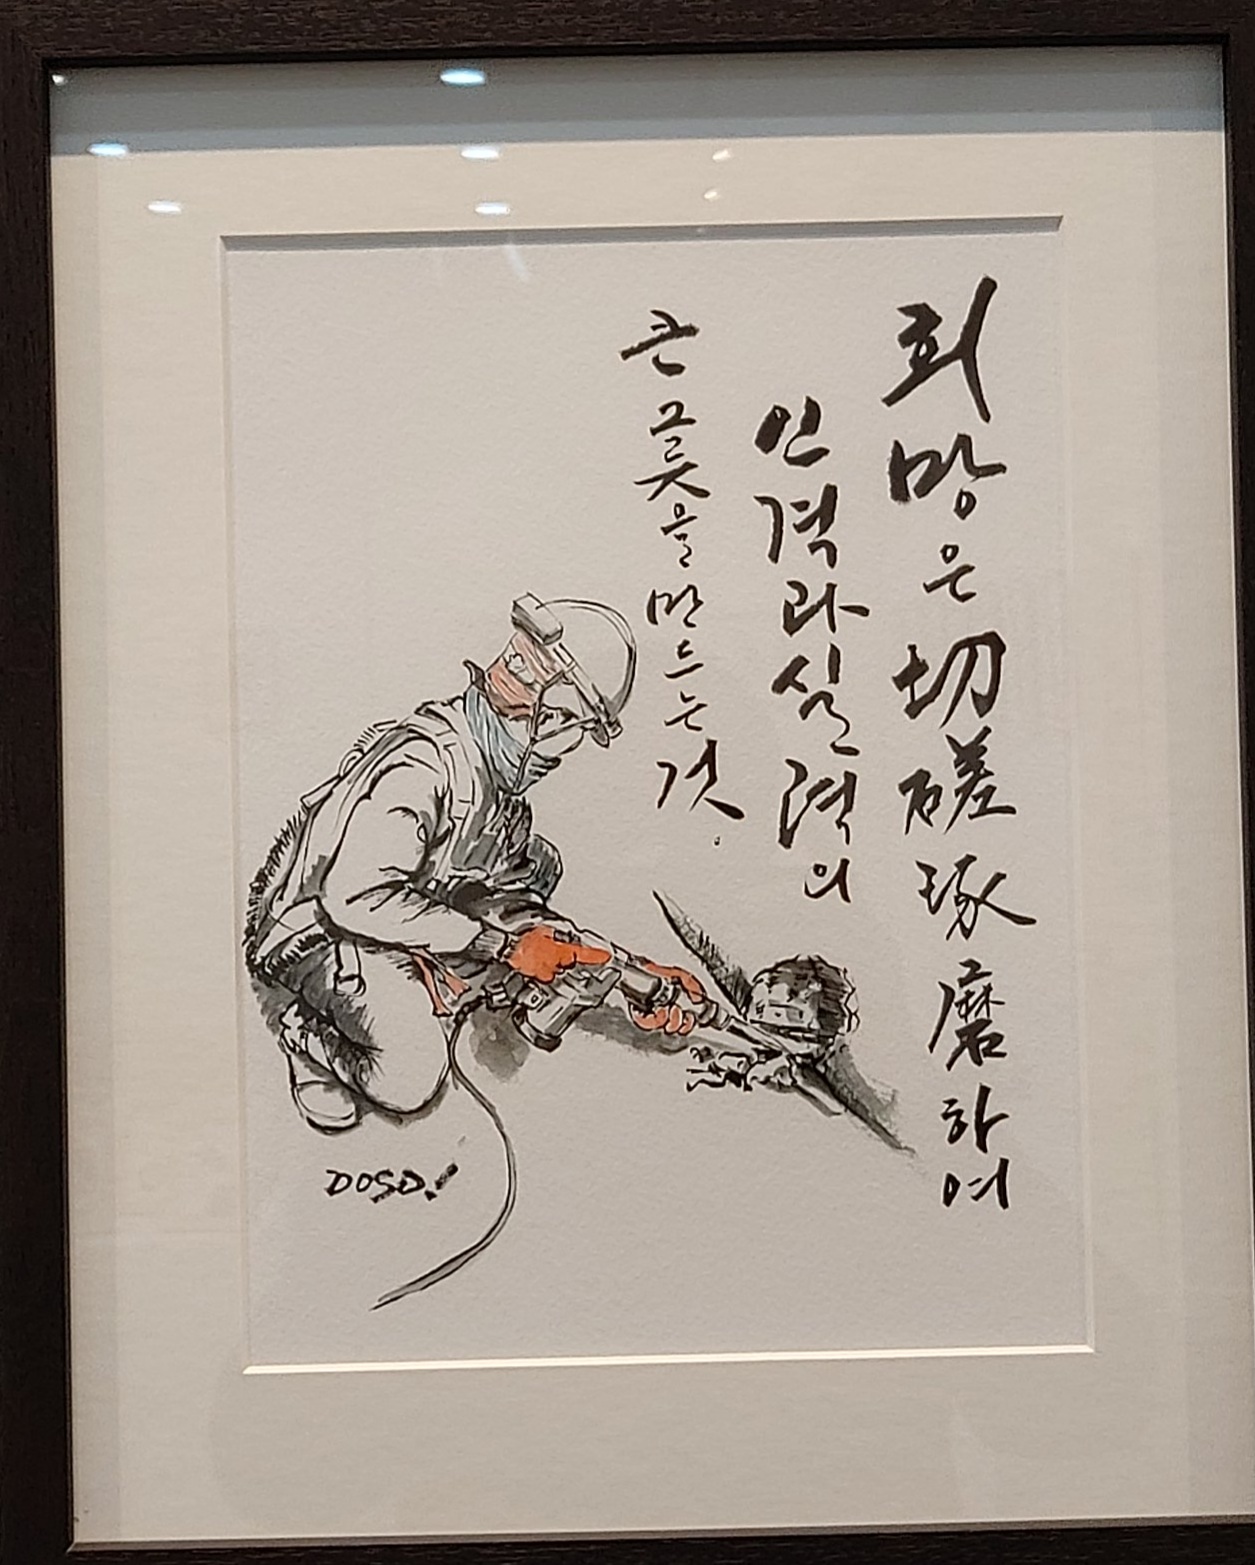 희망은 切磋琢磨하여
인격과 실력의
큰 그릇을 만드는 것.
DOSD!